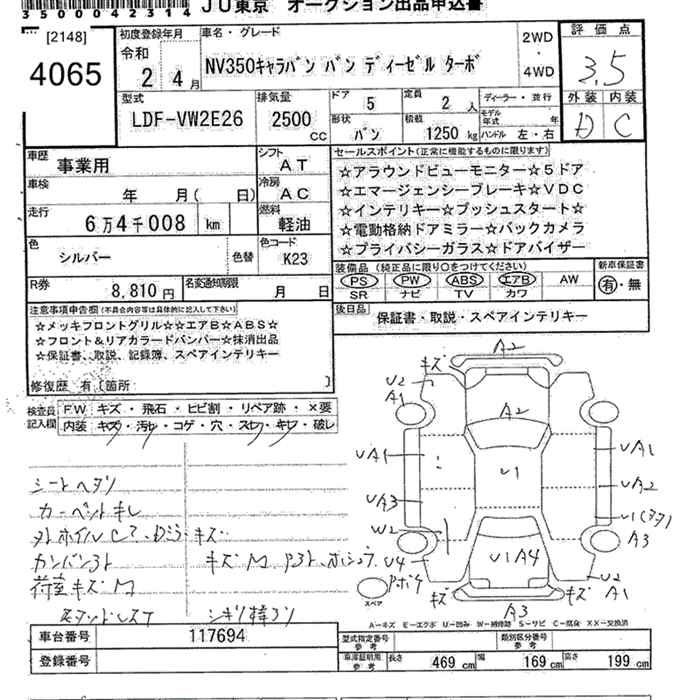 3500042314 JU東京 オークション出品申込書
[2148]
4065
初度登録年月
令和
2 4 月
車名・グレード
NV350キャラバン バン ディーゼル ターボ
2WD
・
4WD
評価点
3.5
外装 内装
D C
型式
LDF-VW2E26
排気量
2500 cc
ドア 5
形状 バン
定員 2 人
積載 1250 kg
ディーラー・並行
モデル年式 年
ハンドル 左・右
車歴 事業用
シフト AT
車検 年 月( 日)
冷房 AC
走行 6万4千008 km
燃料 軽油
色 シルバー 色替
色コード K23
R券 8,810 円
名変通知期限 月 日
セールスポイント(正常に機能するものに限ります)
☆アラウンドビューモニター☆5ドア
☆エマージェンシーブレーキ☆VDC
☆インテリキー☆プッシュスタート☆
☆電動格納ドアミラー☆バックカメラ
☆プライバシーガラス☆ドアバイザー
装備品(純正品に限り○をつけてください)
PS PW ABS エアB AW
SR ナビ TV カワ
新車保証書
有・無
後日品
保証書・取説・スペアインテリキー
注意事項申告欄(不具合内容等は具体的に記入して下さい)
☆メッキフロントグリル☆☆エアB☆ABS☆
☆フロント&リアカラードバンパー☆抹消出品
☆保証書、取説、記録簿、スペアインテリキー
修復歴 有[箇所: ]
検査員記入欄
FW キズ・飛石・ヒビ割・リペア跡・×要
内装 キズ・汚レ・コゲ・穴・スレ・キレ・破レ
シートヘタリ
カーペットキレ
外ホイルC
キズ
カンバン3ト
キズM
荷室キズM
キズ A2
U2
A1
A2
UA1
U1
UA1
UA3
UA2
W2
U1(ヌタ)
A3
U4
U1A4
U2
A1
キズ
A3
キズ
スペア
A-キズ E-エクボ U-凹み W-補修跡 S-サビ C-腐食 XX-交換済
車台番号 117694
登録番号
型式指定番号 参考
類別区分番号 参考
車庫証明用 参考
長さ 469 cm
幅 169 cm
高さ 199 cm